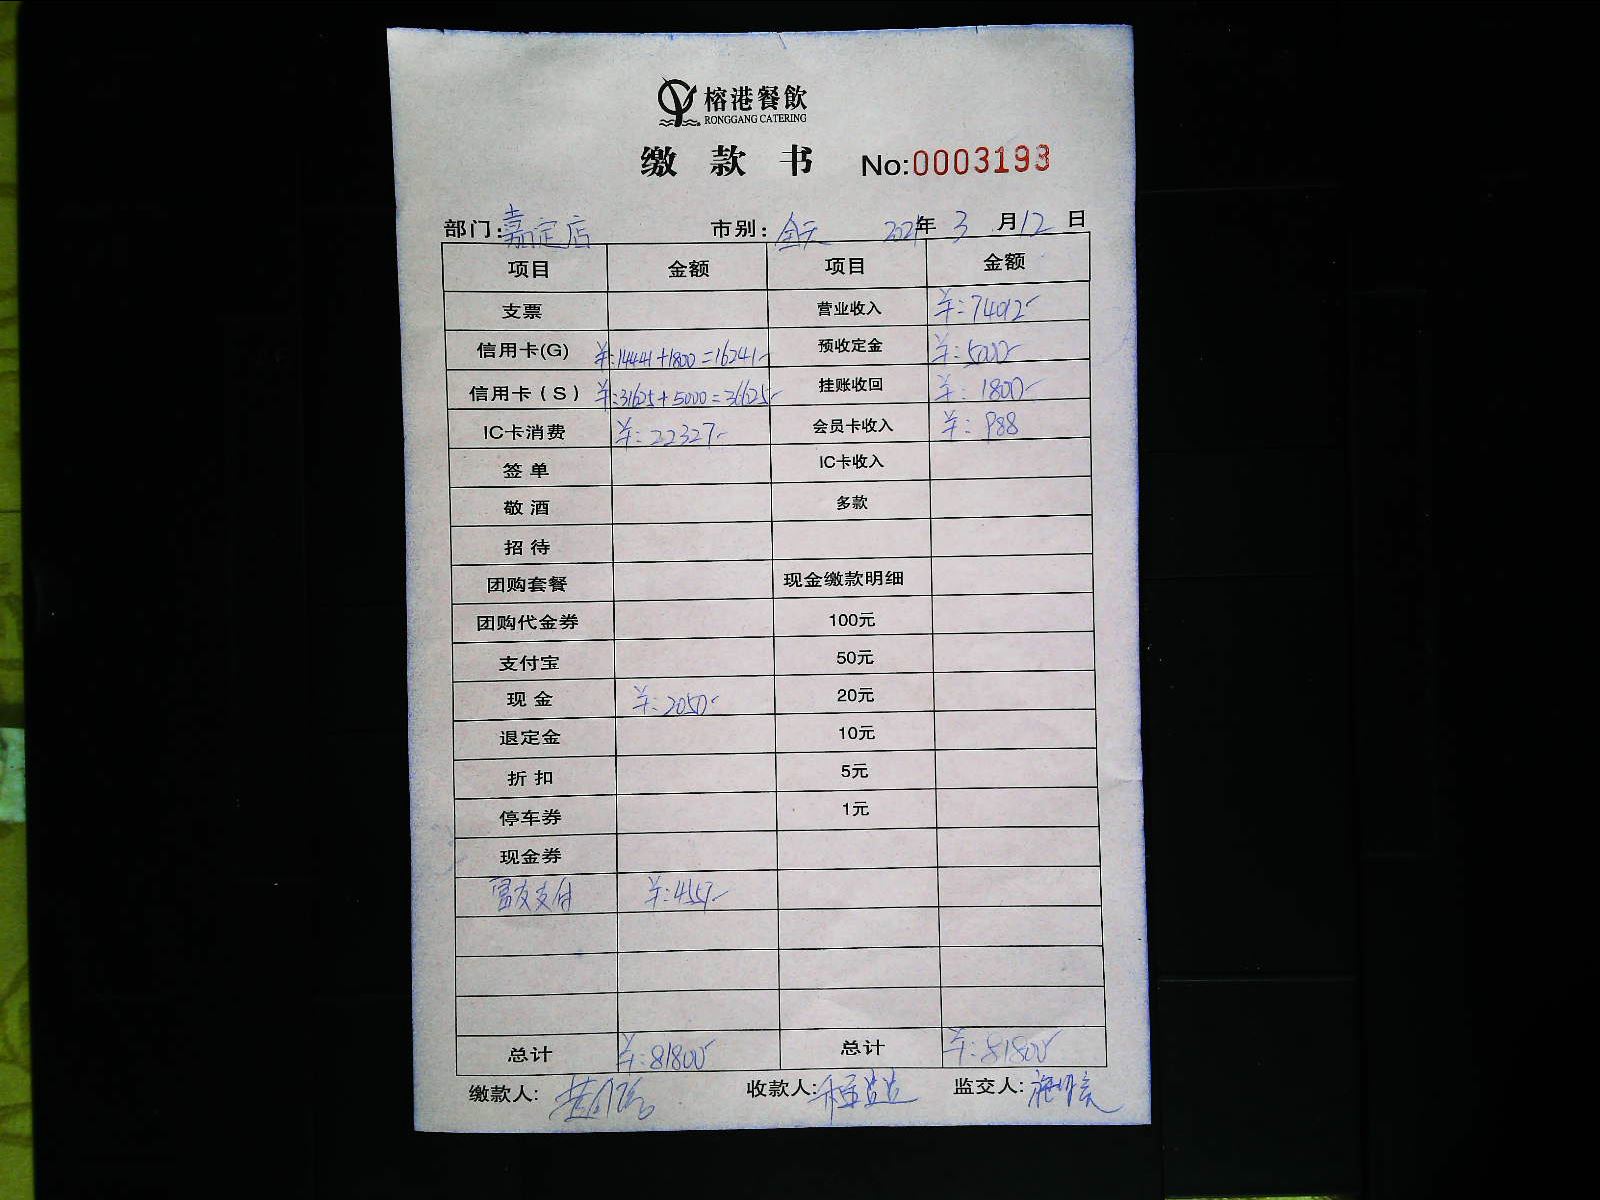 榕港餐飲
RONGGANG CATERING
缴 款 书 No:0003193
部门:嘉定店 市别:全天 2021年3月12日
项目 金额 项目 金额
支票 营业收入 ¥:74012-
信用卡(G) ¥:14441+1800=16241- 预收定金 ¥:5000-
信用卡(S) ¥:31625+5000=36625- 挂账收回 ¥:1800-
IC卡消费 ¥:22327- 会员卡收入 ¥:988
签单 IC卡收入
敬酒 多款
招待
团购套餐 现金缴款明细
团购代金券 100元
支付宝 50元
现金 ¥:2050- 20元
退定金 10元
折扣 5元
停车券 1元
现金券
富友支付 ¥:4557-
总计 ¥:81800- 总计 ¥:81800-
缴款人: 收款人: 监交人: